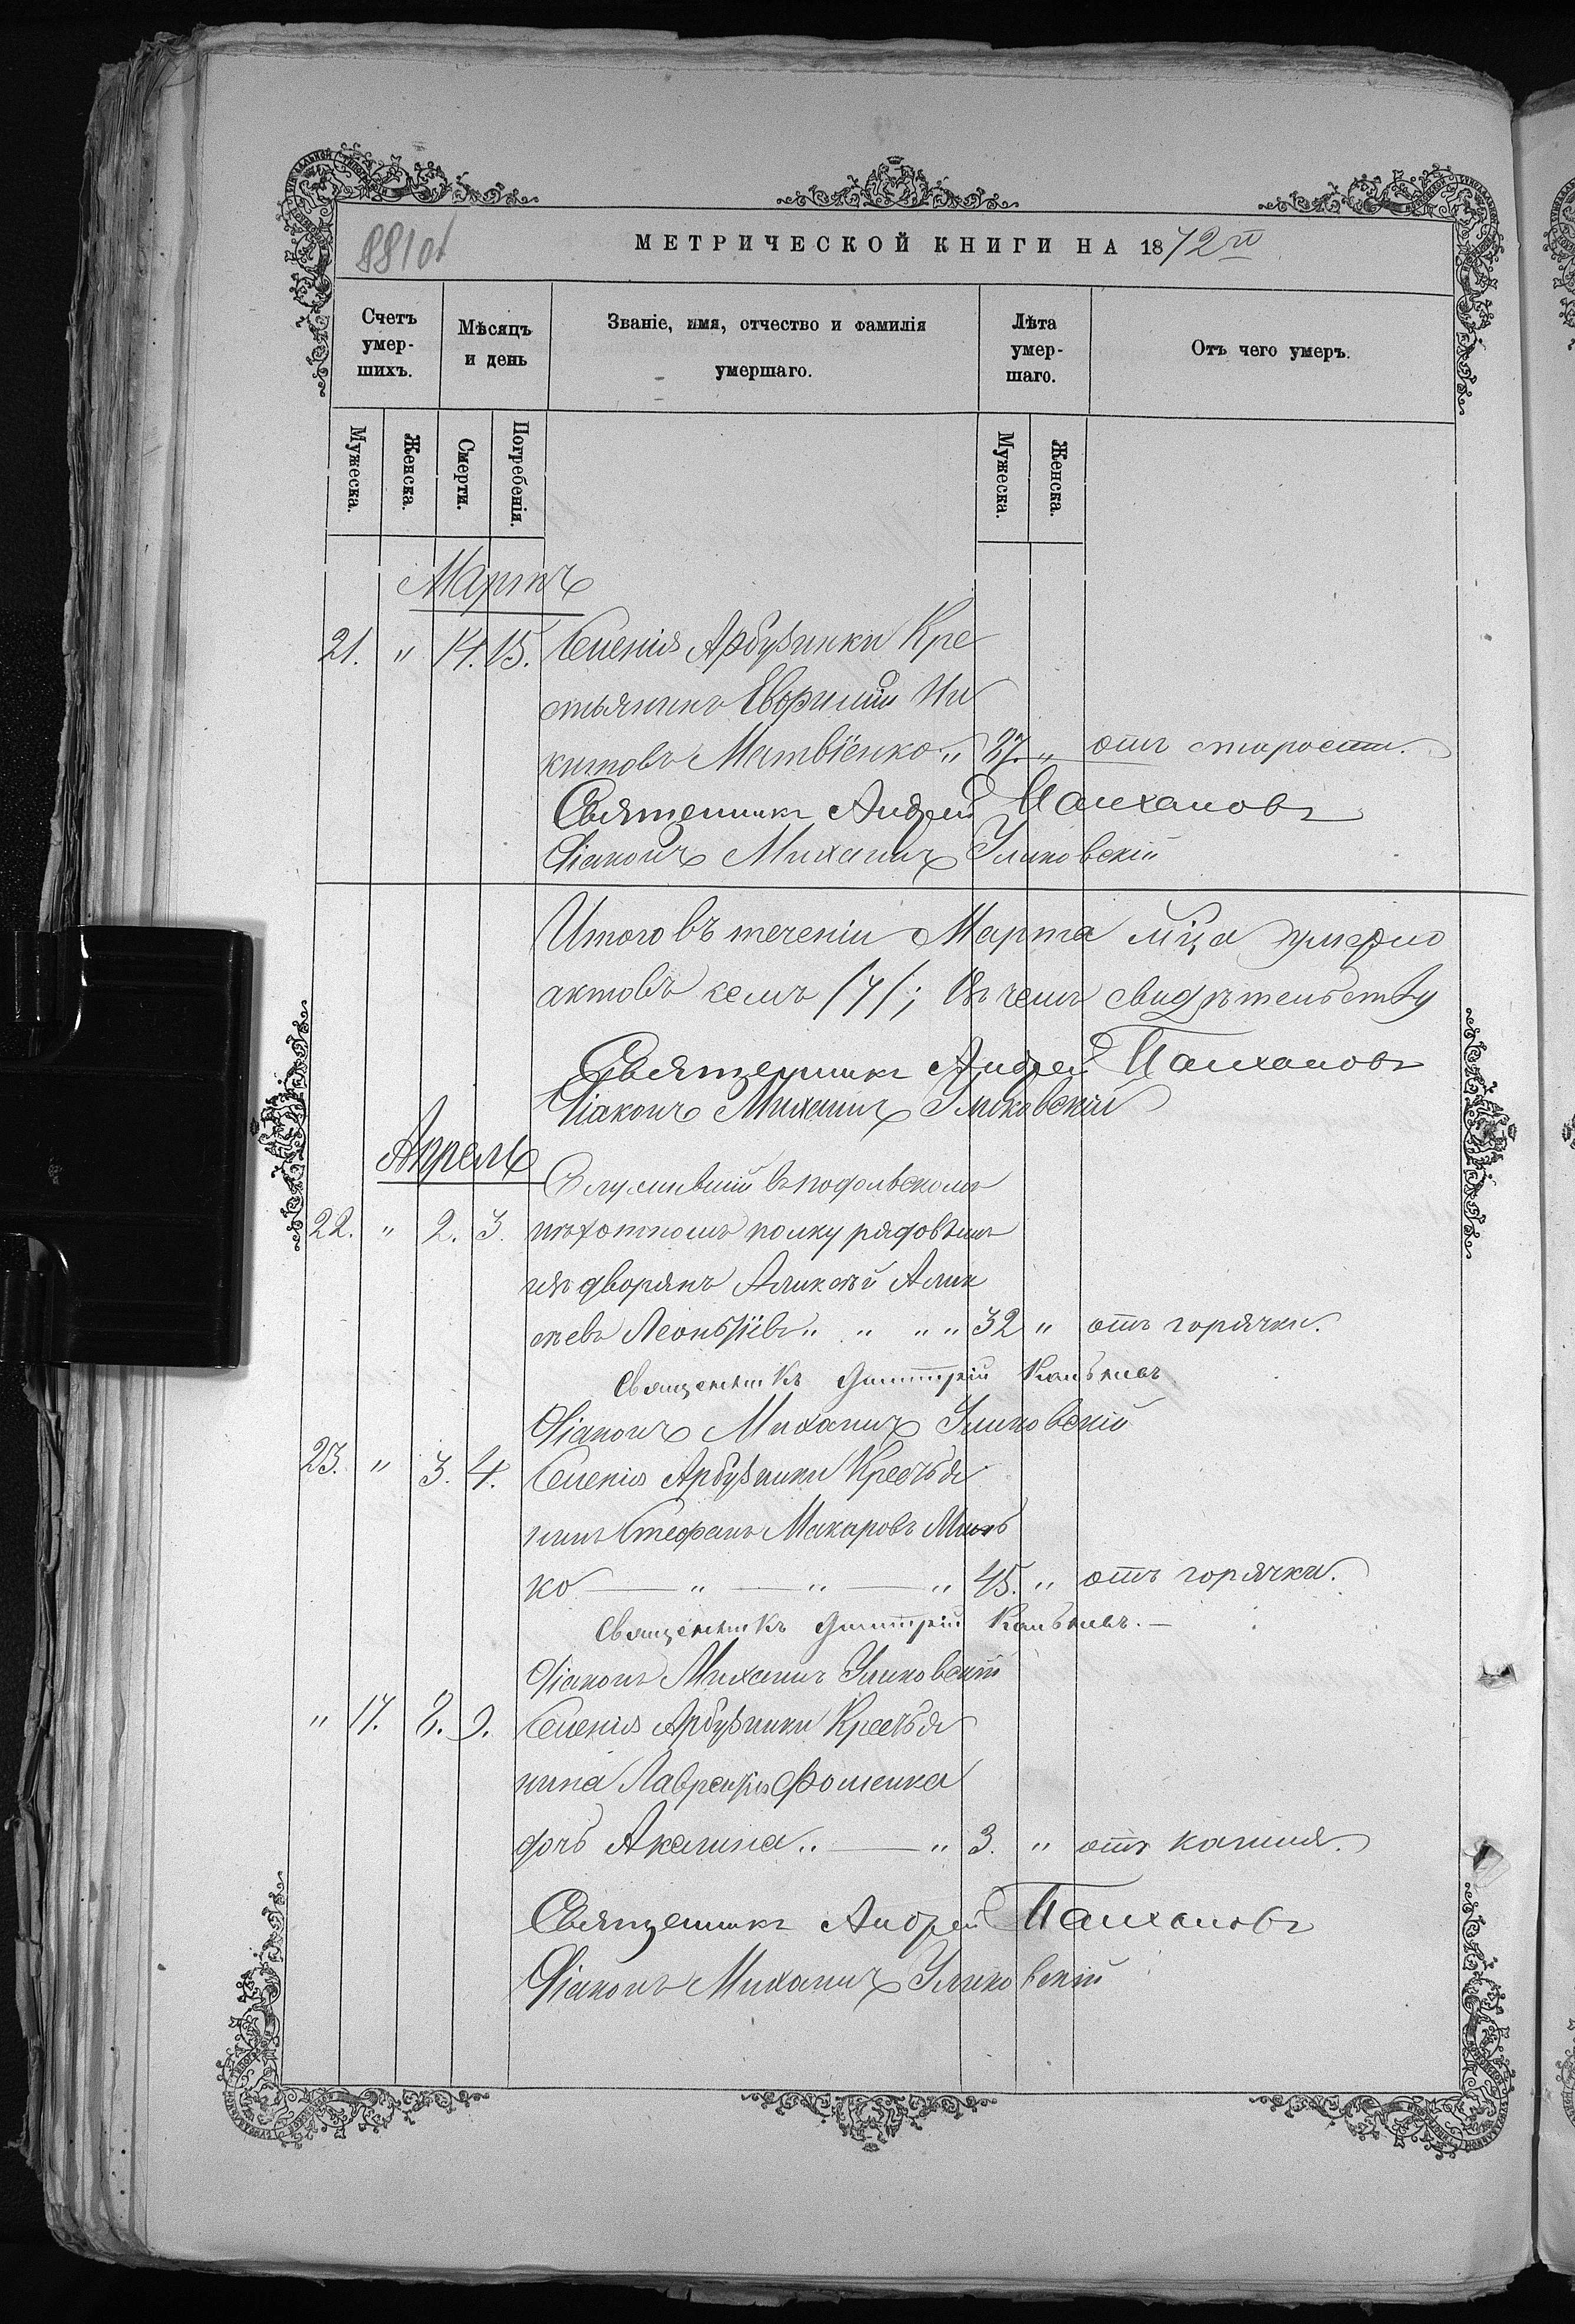 881 об
МЕТРИЧЕСКОЙ КНИГИ НА 1872 й
Счетъ умер-шихъ.
Мѣсяцъ и день
Званіе, имя, отчество и фамилія умершаго.
Лѣта умер-шаго.
Отъ чего умеръ.
Мужеска.
Женска.
Смерти.
Погребенія.
Мужеска.
Женска.
Мартъ
21. " 14. 15. Селенія Арбузинки Кре
стьянинъ Евфимій Ни
китовъ Матвіенко " 87. " отъ старости.
Священникъ Андрей
Діаконъ Михаилъ
Итого въ теченіи Марта м-ца умерло
актовъ семъ /7/; въ чемъ свидѣтельству
Священникъ Андрей
Діаконъ Михаилъ
Апрель
Служивший въ подольскомъ
22. " 2. 3. пѣхотномъ полку рядовымъ
изъ дворянъ Алексѣй Алек
сѣевъ Леонтіевъ " " " " 32 " отъ горячки.
Священникъ Димитрій
Діаконъ Михаилъ
23. " 3. 4. Селенія Арбузинки Крестья
нинъ Стефанъ Макаровъ Минь
ко — " — " — " 45. " отъ горячки.
Священникъ Димитрій
Діаконъ Михаилъ
" 17. 8. 9. Селенія Арбузинки Крестья
нина Лаврентія Фоменка
дочь Акилина " — " 3. " отъ кашля.
Священникъ Андрей
Діаконъ Михаилъ